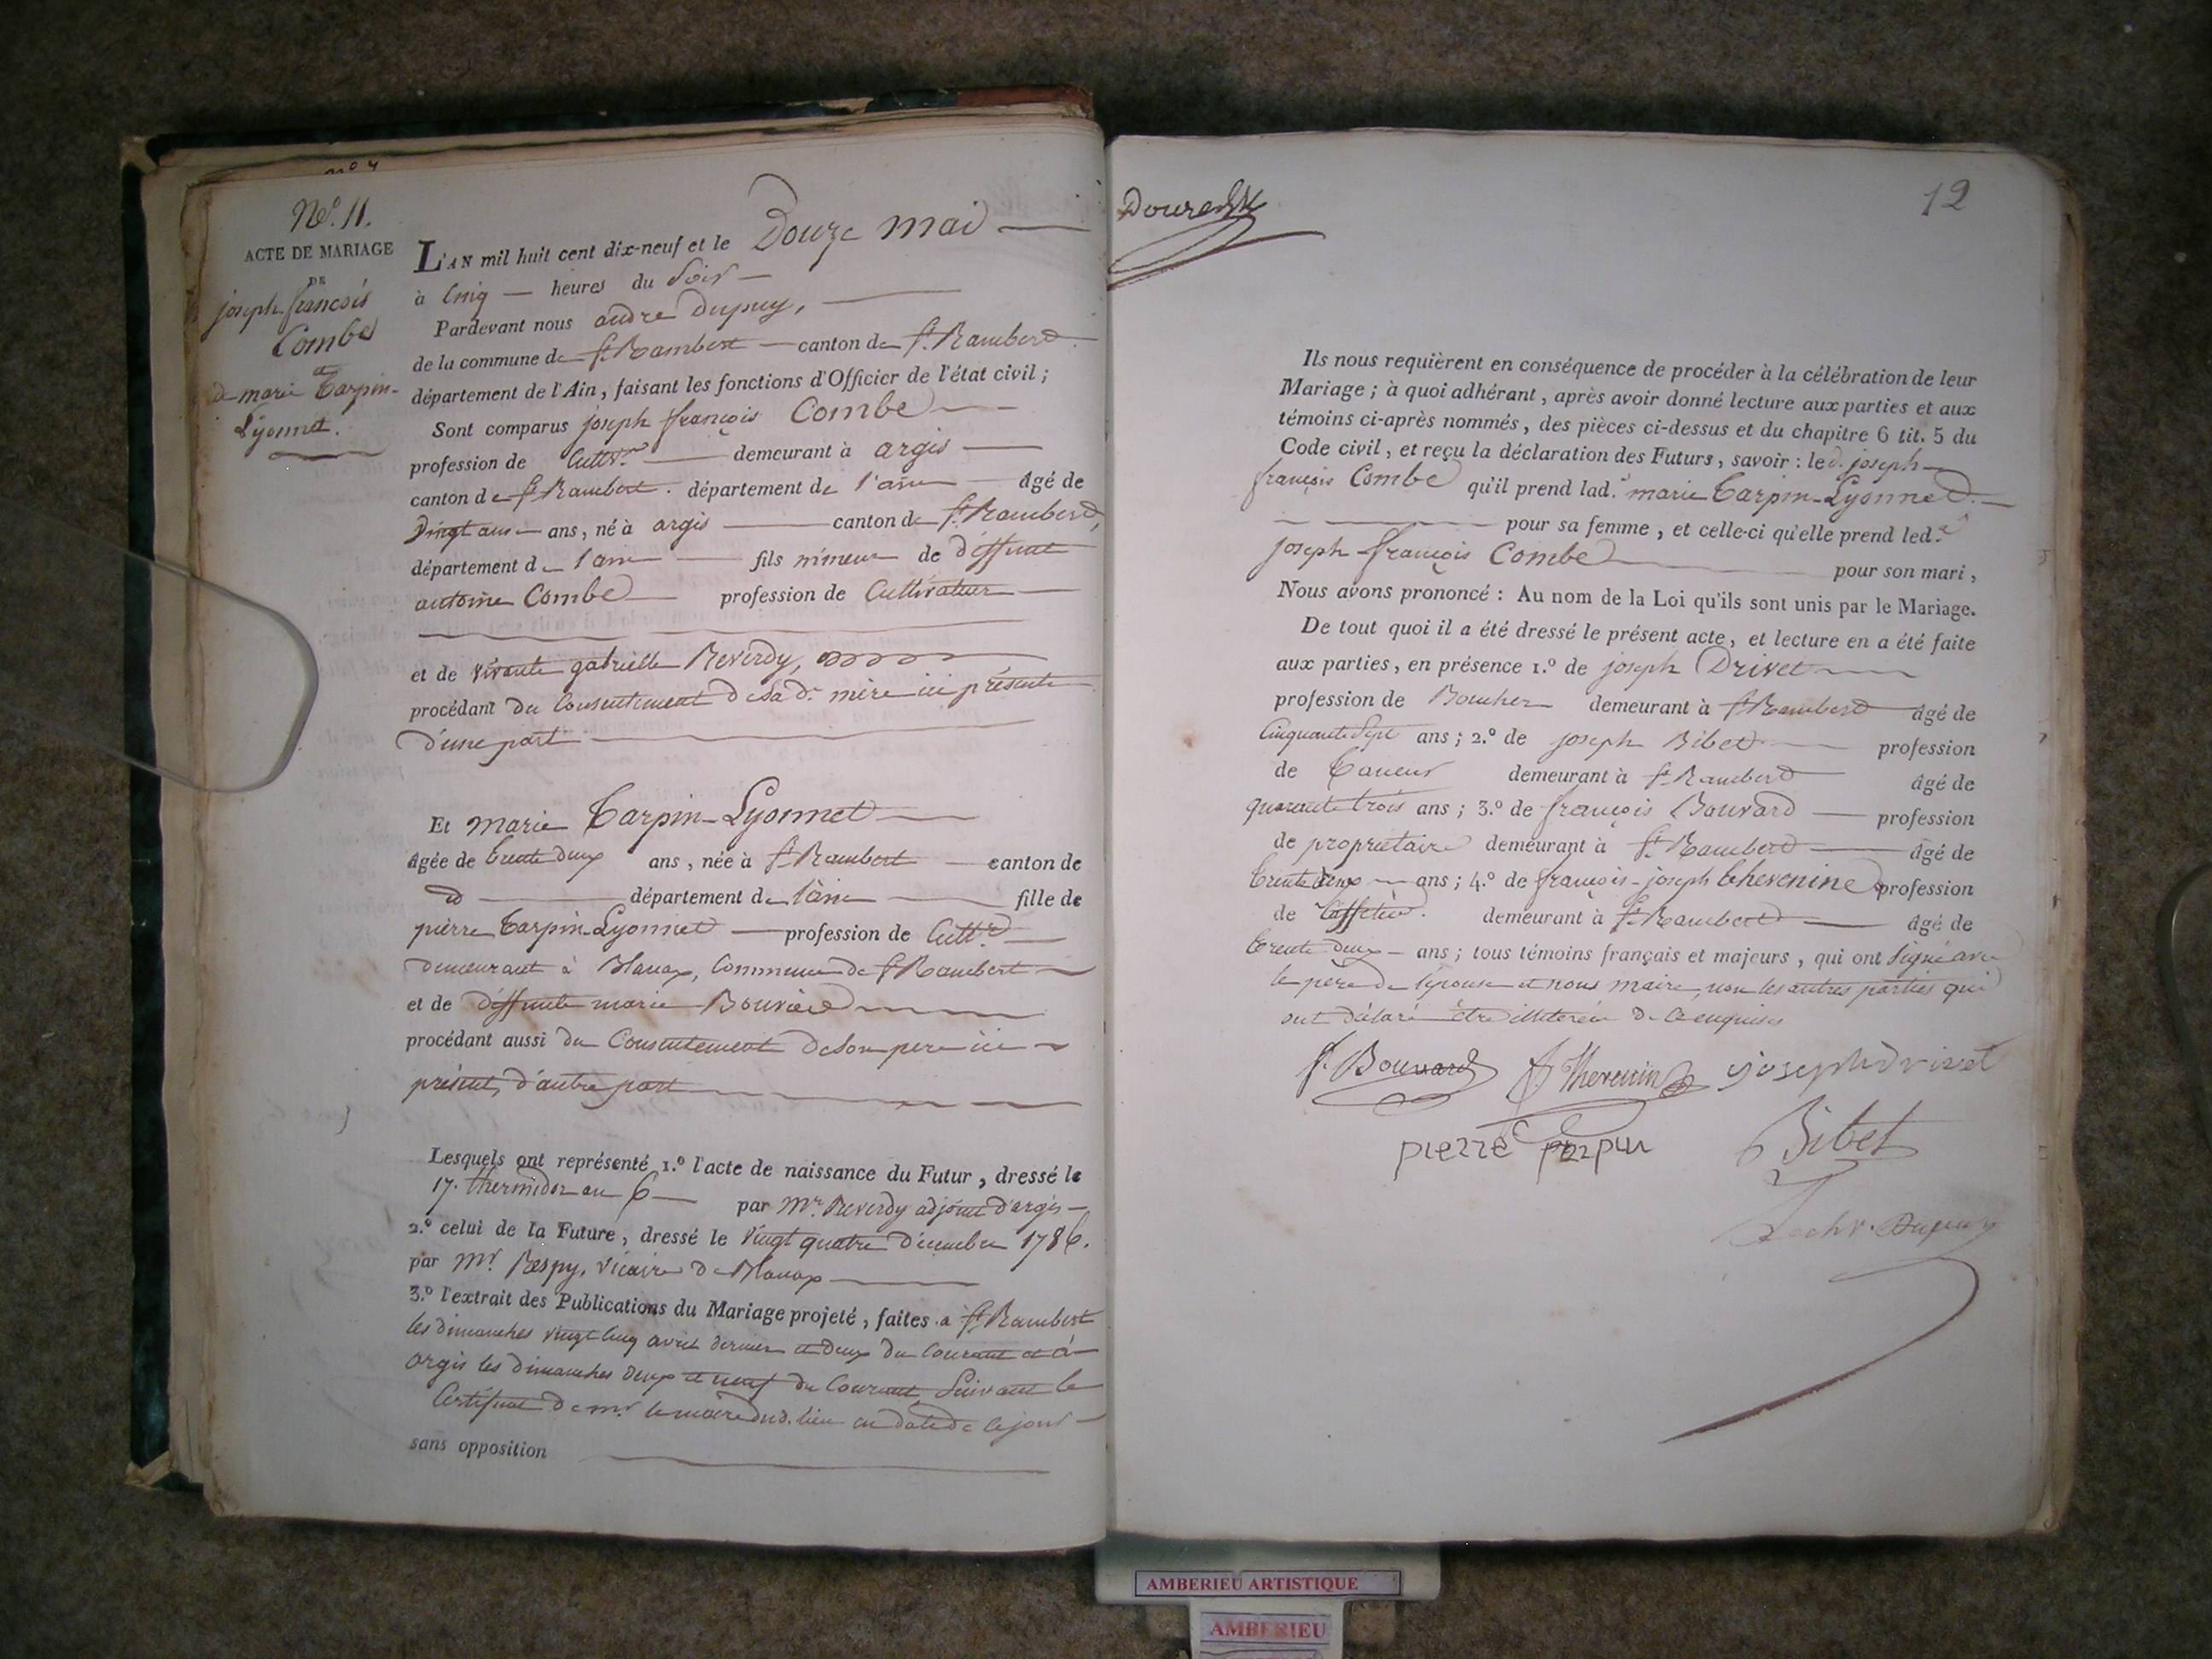 nº 4
Nº. 11.
ACTE DE MARIAGE
DE
joseph françois
Combe
et
de marie Tarpin-
Lyonnet.
L'AN mil huit cent dix-neuf et le Douze mai
à Cinq heures du Soir
Pardevant nous andré Dupuy,
de la commune de St. Rambert canton de St. Rambert
département de l'Ain, faisant les fonctions d'Officier de l'état civil;
Sont comparus joseph françois Combe
profession de Cultr. demeurant à argis
canton de St. Rambert. département de l'ain âgé de
Vingt ans ans, né à argis canton de St. Rambert,
département de l'ain fils mineur de déffunt
antoine Combe profession de Cultivateur
et de vivante gabrielle Reverdy,
procédant du Consentement de sa de. mère ici présente
d'une part
Et marie Tarpin-Lyonnet
âgée de trente deux ans, née à St. Rambert canton de
d département de l'ain fille de
pierre Tarpin-Lyonnet profession de Cultr.
demeurant à Blanaz, Commune de St. Rambert
et de déffunte marie Bouvier
procédant aussi du Consentement de son pere ici
présent, d'autre part
Lesquels ont représenté 1.º l'acte de naissance du Futur, dressé le
17. thermidor an 6 par Mr. Reverdy adjoint d'argis
2.º celui de la Future, dressé le vingt quatre décembre 1786.
par Mr. Respy, vicaire de Blanaz
3.º l'extrait des Publications du Mariage projeté, faites à St. Rambert
les dimanches vingt cinq avril dernier et deux du Courant et à
argis les dimanches deux et neuf du Courant, Suivant le
Certificat de mr. le maire dud. lieu en date de ce jour
sans opposition
12
Ils nous requièrent en conséquence de procéder à la célébration de leur
Mariage; à quoi adhérant, après avoir donné lecture aux parties et aux
témoins ci-après nommés, des pièces ci-dessus et du chapitre 6 tit. 5 du
Code civil, et reçu la déclaration des Futurs, savoir: led. joseph
françois Combe qu'il prend lad. marie Tarpin-Lyonnet
pour sa femme, et celle-ci qu'elle prend led.
joseph françois Combe pour son mari,
Nous avons prononcé: Au nom de la Loi qu'ils sont unis par le Mariage.
De tout quoi il a été dressé le présent acte, et lecture en a été faite
aux parties, en présence 1.º de joseph Drivet
profession de Boucher demeurant à St. Rambert âgé de
Cinquante Sept ans; 2.º de joseph Bibet profession
de Taneur demeurant à St. Rambert âgé de
quarante trois ans; 3.º de françois Bouvard profession
de propriétaire demeurant à St. Rambert âgé de
trente deux ans; 4.º de françois-joseph thevenin profession
de Caffetier. demeurant à St. Rambert âgé de
trente deux ans; tous témoins français et majeurs, qui ont Signé avec
le père de l'épouse et nous maire, non les autres parties qui
ont déclaré être illiterées de ce enquises
f. Bouvard f Thevenin joseph drivet
pierre tarpin Bibet
Dupuy
AMBERIEU ARTISTIQUE
AMBERIEU